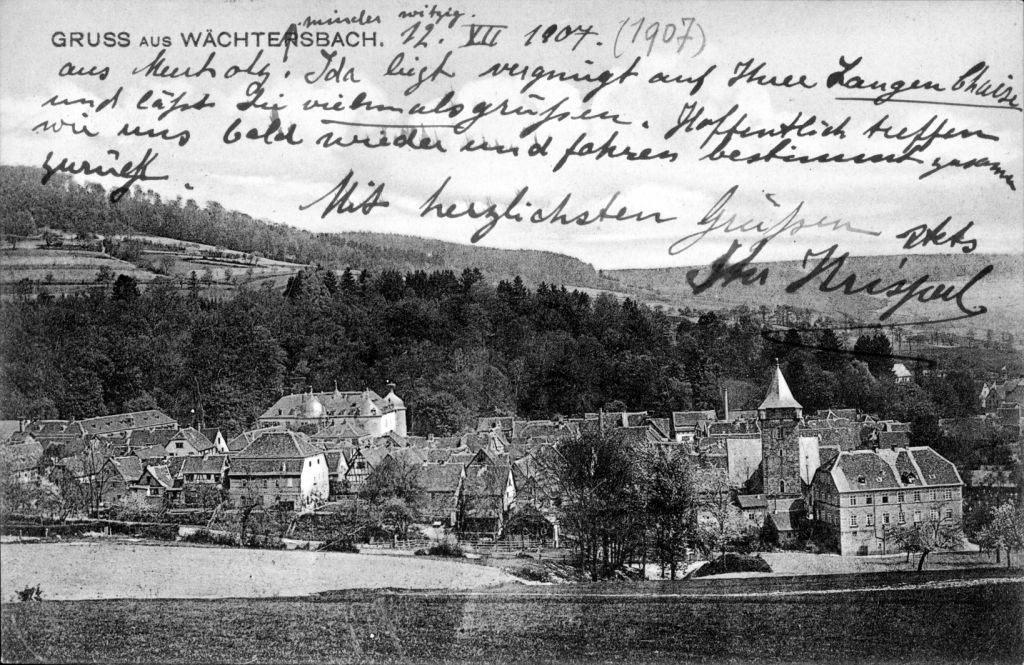 minder witzig.
GRUSS AUS WÄCHTERSBACH. 12. VII 1907. (1907)
aus Meerholz. Ida liegt vergnügt auf Ihrer Langen Chaise
und läßt Sie vielmalsgrüßen. Hoffentlich treffen
wir uns bald wieder und fahren bestimmt zusammen
zurück.
Mit herzlichsten Grüßen stets
Ihr